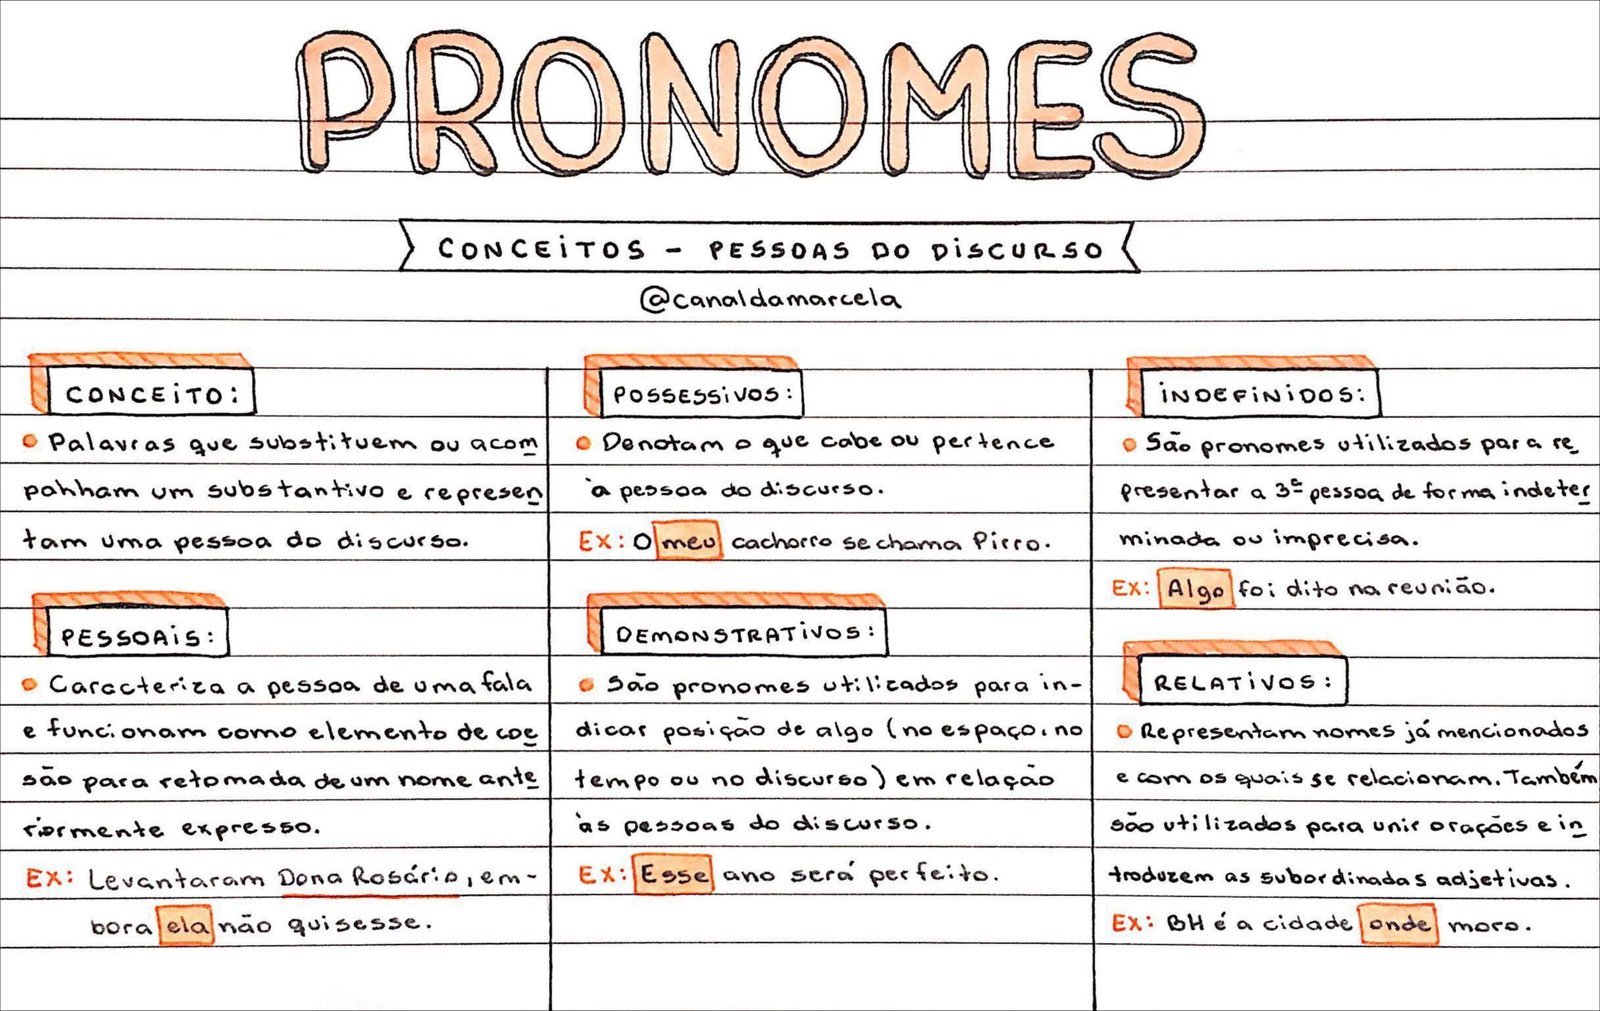 PRONOMES
CONCEITOS - PESSOAS DO DISCURSO
@canaldamarcela
CONCEITO:
• Palavras que substituem ou acom
panham um substantivo e represen
tam uma pessoa do discurso.
PESSOAIS:
• Caracteriza a pessoa de uma fala
e funcionam como elemento de coe
são para retomada de um nome ante
riormente expresso.
EX: Levantaram Dona Rosário, em-
bora ela não quisesse.
POSSESSIVOS:
• Denotam o que cabe ou pertence
à pessoa do discurso.
EX: O meu cachorro se chama Pirro.
DEMONSTRATIVOS:
• São pronomes utilizados para in-
dicar posição de algo (no espaço, no
tempo ou no discurso) em relação
às pessoas do discurso.
EX: Esse ano será perfeito.
INDEFINIDOS:
• São pronomes utilizados para re
presentar a 3ª pessoa de forma indeter
minada ou imprecisa.
EX: Algo foi dito na reunião.
RELATIVOS:
• Representam nomes já mencionados
e com os quais se relacionam. Também
são utilizados para unir orações e in
troduzem as subordinadas adjetivas.
EX: BH é a cidade onde moro.